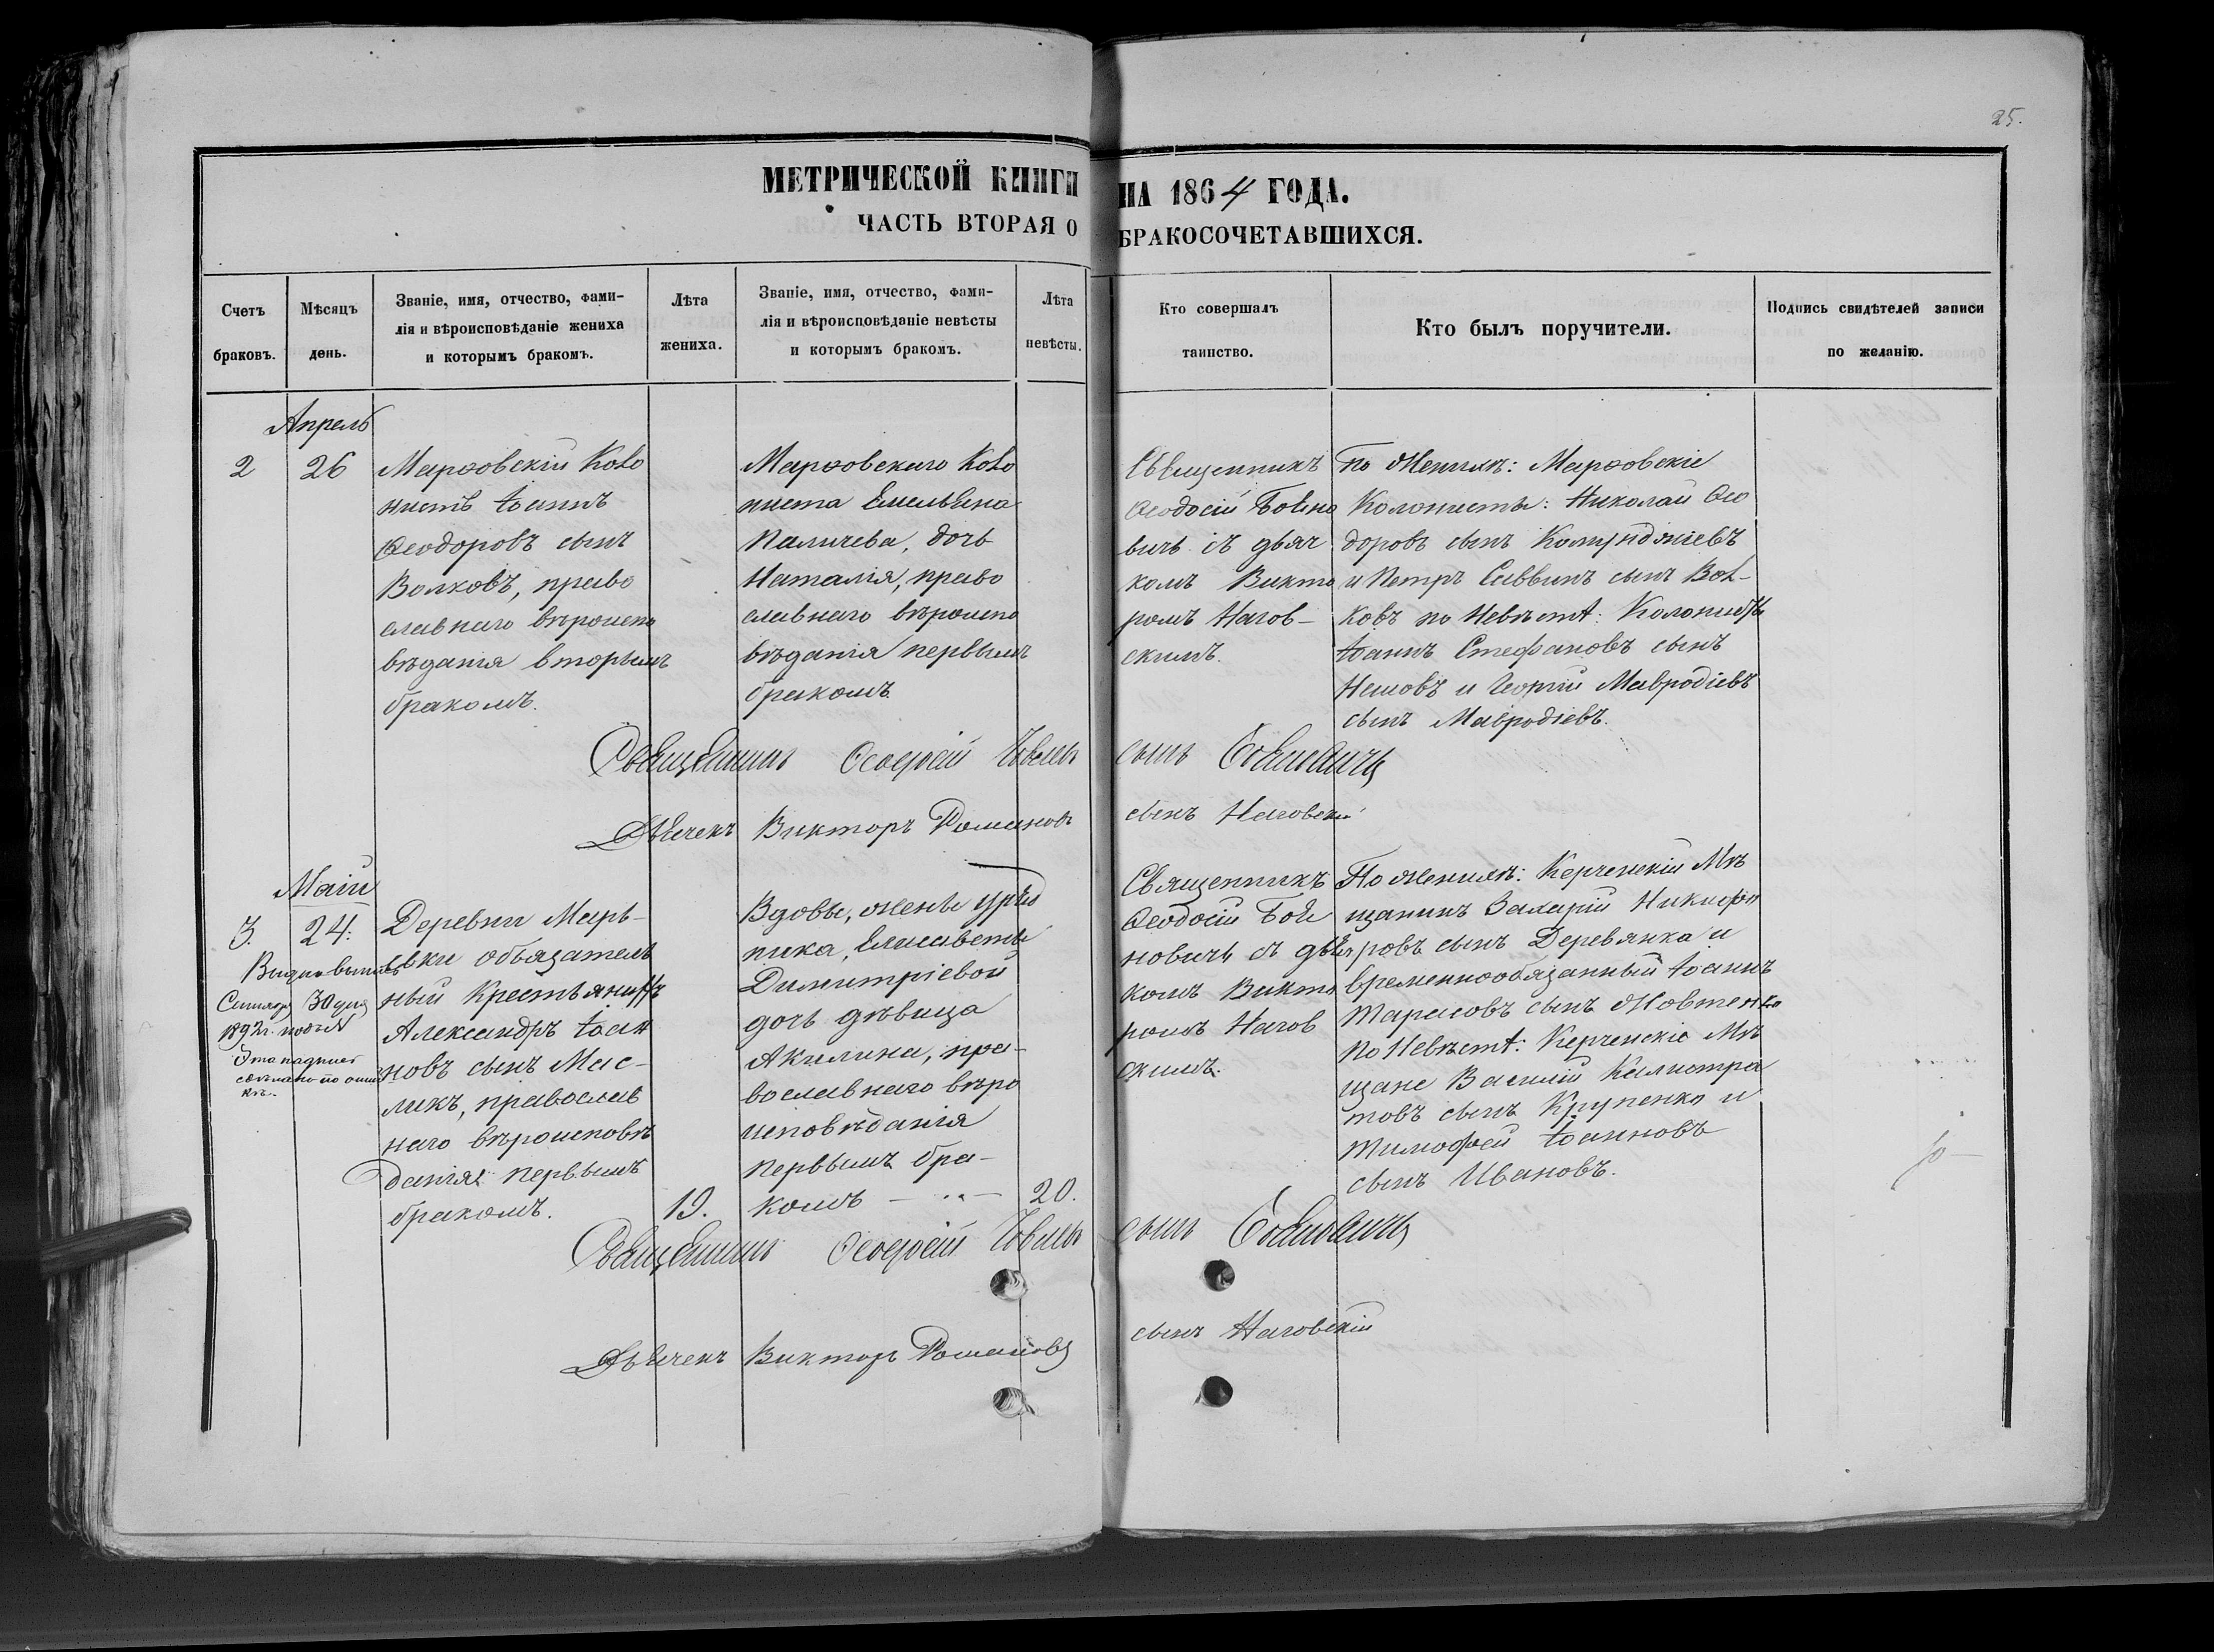 25.
МЕТРИЧЕСКОЙ КНИГИ НА 1864 ГОДА.
ЧАСТЬ ВТОРАЯ О БРАКОСОЧЕТАВШИХСЯ.
Счетъ браковъ.
Мѣсяцъ день.
Званіе, имя, отчество, фами-
лія и вѣроисповѣданіе жениха
и которымъ бракомъ.
Лѣта
жениха.
Званіе, имя, отчество, фами-
лія и вѣроисповѣданіе невѣсты
и которымъ бракомъ.
Лѣта
невѣсты.
Кто совершалъ
таинство.
Кто былъ поручители.
Подпись свидѣтелей записи
по желанію.
Апрель
2 26
Марфовскій Коло
нистъ Іоаннъ
Ѳеодоровъ сынъ
Волковъ, право
славнаго вѣроиспо
вѣданія вторымъ
бракомъ.
Марфовскаго Коло
ниста Емельяна
Паличева, дочь
Наталія, право
славнаго вѣроиспо
вѣданія первымъ
бракомъ
Священникъ
Ѳеодосій Бояно
вичъ съ дьяч
комъ Викто
ромъ Нагов-
скимъ.
По Женихѣ: Марфовскіе
Колонисты: Николай Ѳео
доровъ сынъ Комунджіевъ
и Петръ Саввинъ сынъ Вол-
ковъ по Невѣстѣ: Колонисты
Іоаннъ Стефановъ сынъ
Нешовъ и Георгій Мавродіевъ
сынъ Мавродіевъ.
Священникъ Ѳеодосій сынъ Бояновичъ
Дьячекъ Викторъ Романовъ сынъ Наговскій
Маій
3. 24:
Выдано
30 дня
1892 г. подъ №
Эта надпись
сдѣлана по ошиб
кѣ.
Деревни Марь-
евки обязатель
ный Крестьянинъ
Александръ Іоан
новъ сынъ Мас-
ликъ, православ
наго вѣроисповѣ
данія первымъ
бракомъ.
19.
Вдовы, жены уряд
ника, Елисаветы
Димитріевой
дочь дѣвица
Акилина, пра-
вославнаго вѣро
исповѣданія
первымъ бра-
комъ
20.
Священникъ
Ѳеодосій Боя
новичъ съ дьяч
комъ Викто
ромъ Нагов
скимъ.
По женихѣ: Керченскій Мѣ
щанинъ Захарій Никифо
ровъ сынъ Деревянка и
временнообязанный Іоаннъ
Тарасовъ сынъ Жовтенко
По Невѣстѣ: Керченскіе Мѣ
щане Василій Калистра
товъ сынъ Крупенко и
Тимофей Іоанновъ
сынъ Ивановъ.
Священникъ Ѳеодосій сынъ Бояновичъ
Дьячекъ Викторъ Романовъ сынъ Наговскій